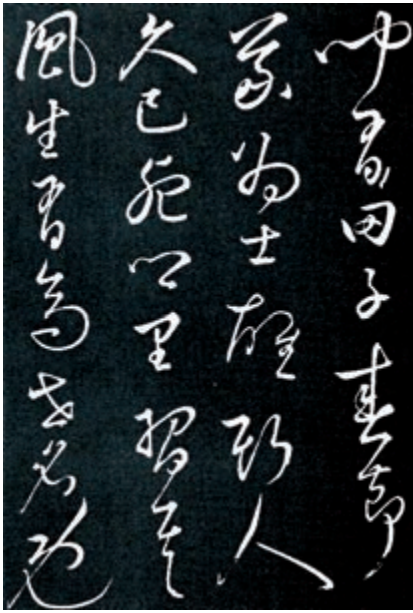 聞有田子春節
義為士雄斯人
久已死鄉里習其
風生有高世名既